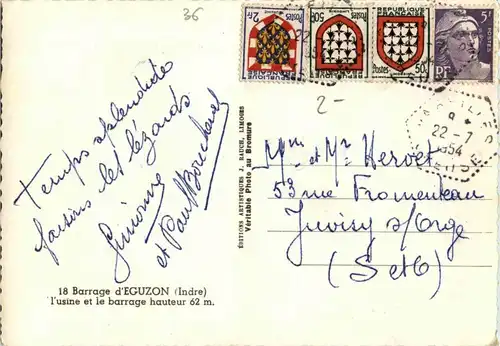 36
2-
Temps splendide
faisons les lézards
Simone
et Paul Bouchard
18 Barrage d'EGUZON (Indre)
l'usine et le barrage hauteur 62 m.
ÉDITIONS ARTISTIQUES J. BAUER, LIMOGES
Véritable Photo au Bromure
2F
Postes
50c
REPUBLIQUE FRANÇAISE
Postes
50c
5F
22-7
1954
CREUSE
Mme et Mr Hervet
53 rue Fromenteau
Juvisy s/Orge
(S et O)